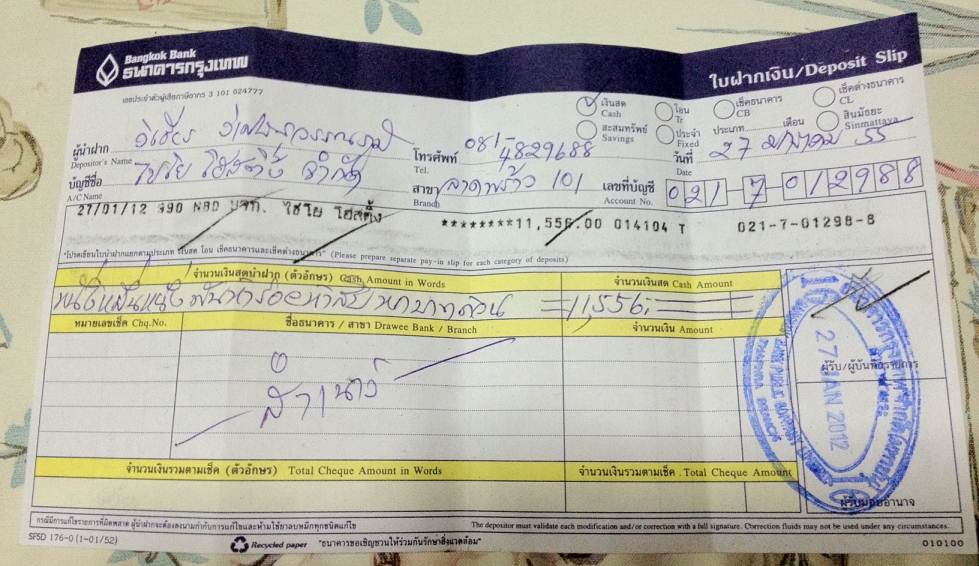 Bangkok Bank
ธนาคารกรุงเทพ
ใบฝากเงิน/Deposit Slip
เลขประจำตัวผู้เสียภาษีอากร 3 101 024777
เงินสด Cash
โอน Tr
เช็คธนาคาร CB
เช็คต่างธนาคาร CL
สะสมทรัพย์ Savings
ประจำ Fixed
ประเภท เดือน
สินมัธยะ Sinmattaya
ผู้นำฝาก Depositor's Name
โทรศัพท์ Tel. 081-4829688
วันที่ Date 27 มกราคม 55
บัญชีชื่อ A/C Name ไชโย โฮสติ้ง จำกัด
สาขา Branch ลาดพร้าว 101
เลขที่บัญชี Account No. 021-7-012988
27/01/12 990 NBD บจก. ไชโย โฮสติ้ง ********11,556.00 014104 T 021-7-01298-8
"โปรดเขียนใบนำฝากแยกตามประเภท เงินสด โอน เช็คและเช็คต่างธนาคาร" (Please prepare separate pay-in slip for each category of deposits)
จำนวนเงินสดนำฝาก (ตัวอักษร) Cash Amount in Words
จำนวนเงินสด Cash Amount
หนึ่งหมื่นหนึ่งพันห้าร้อยห้าสิบหกบาทถ้วน
=11,556.-
หมายเลขเช็ค Chq.No.
ชื่อธนาคาร / สาขา Drawee Bank / Branch
จำนวนเงิน Amount
สำเนา
27 JAN 2012
ผู้รับ/ผู้บันทึกรายการ
จำนวนเงินรวมตามเช็ค (ตัวอักษร) Total Cheque Amount in Words
จำนวนเงินรวมตามเช็ค . Total Cheque Amount
ผู้รับมอบอำนาจ
กรณีมีการแก้ไขรายการที่ผิดพลาด ผู้นำฝากจะต้องลงนามกำกับการแก้ไขและห้ามใช้ยาลบหมึกทุกชนิดแก้ไข
The depositor must validate each modification and/or correction with a full signature. Correction fluids may not be used under any circumstances.
SFSD 176-0 (1-01/52)
Recycled paper "ธนาคารขอเชิญชวนให้ร่วมกันรักษาสิ่งแวดล้อม"
010100